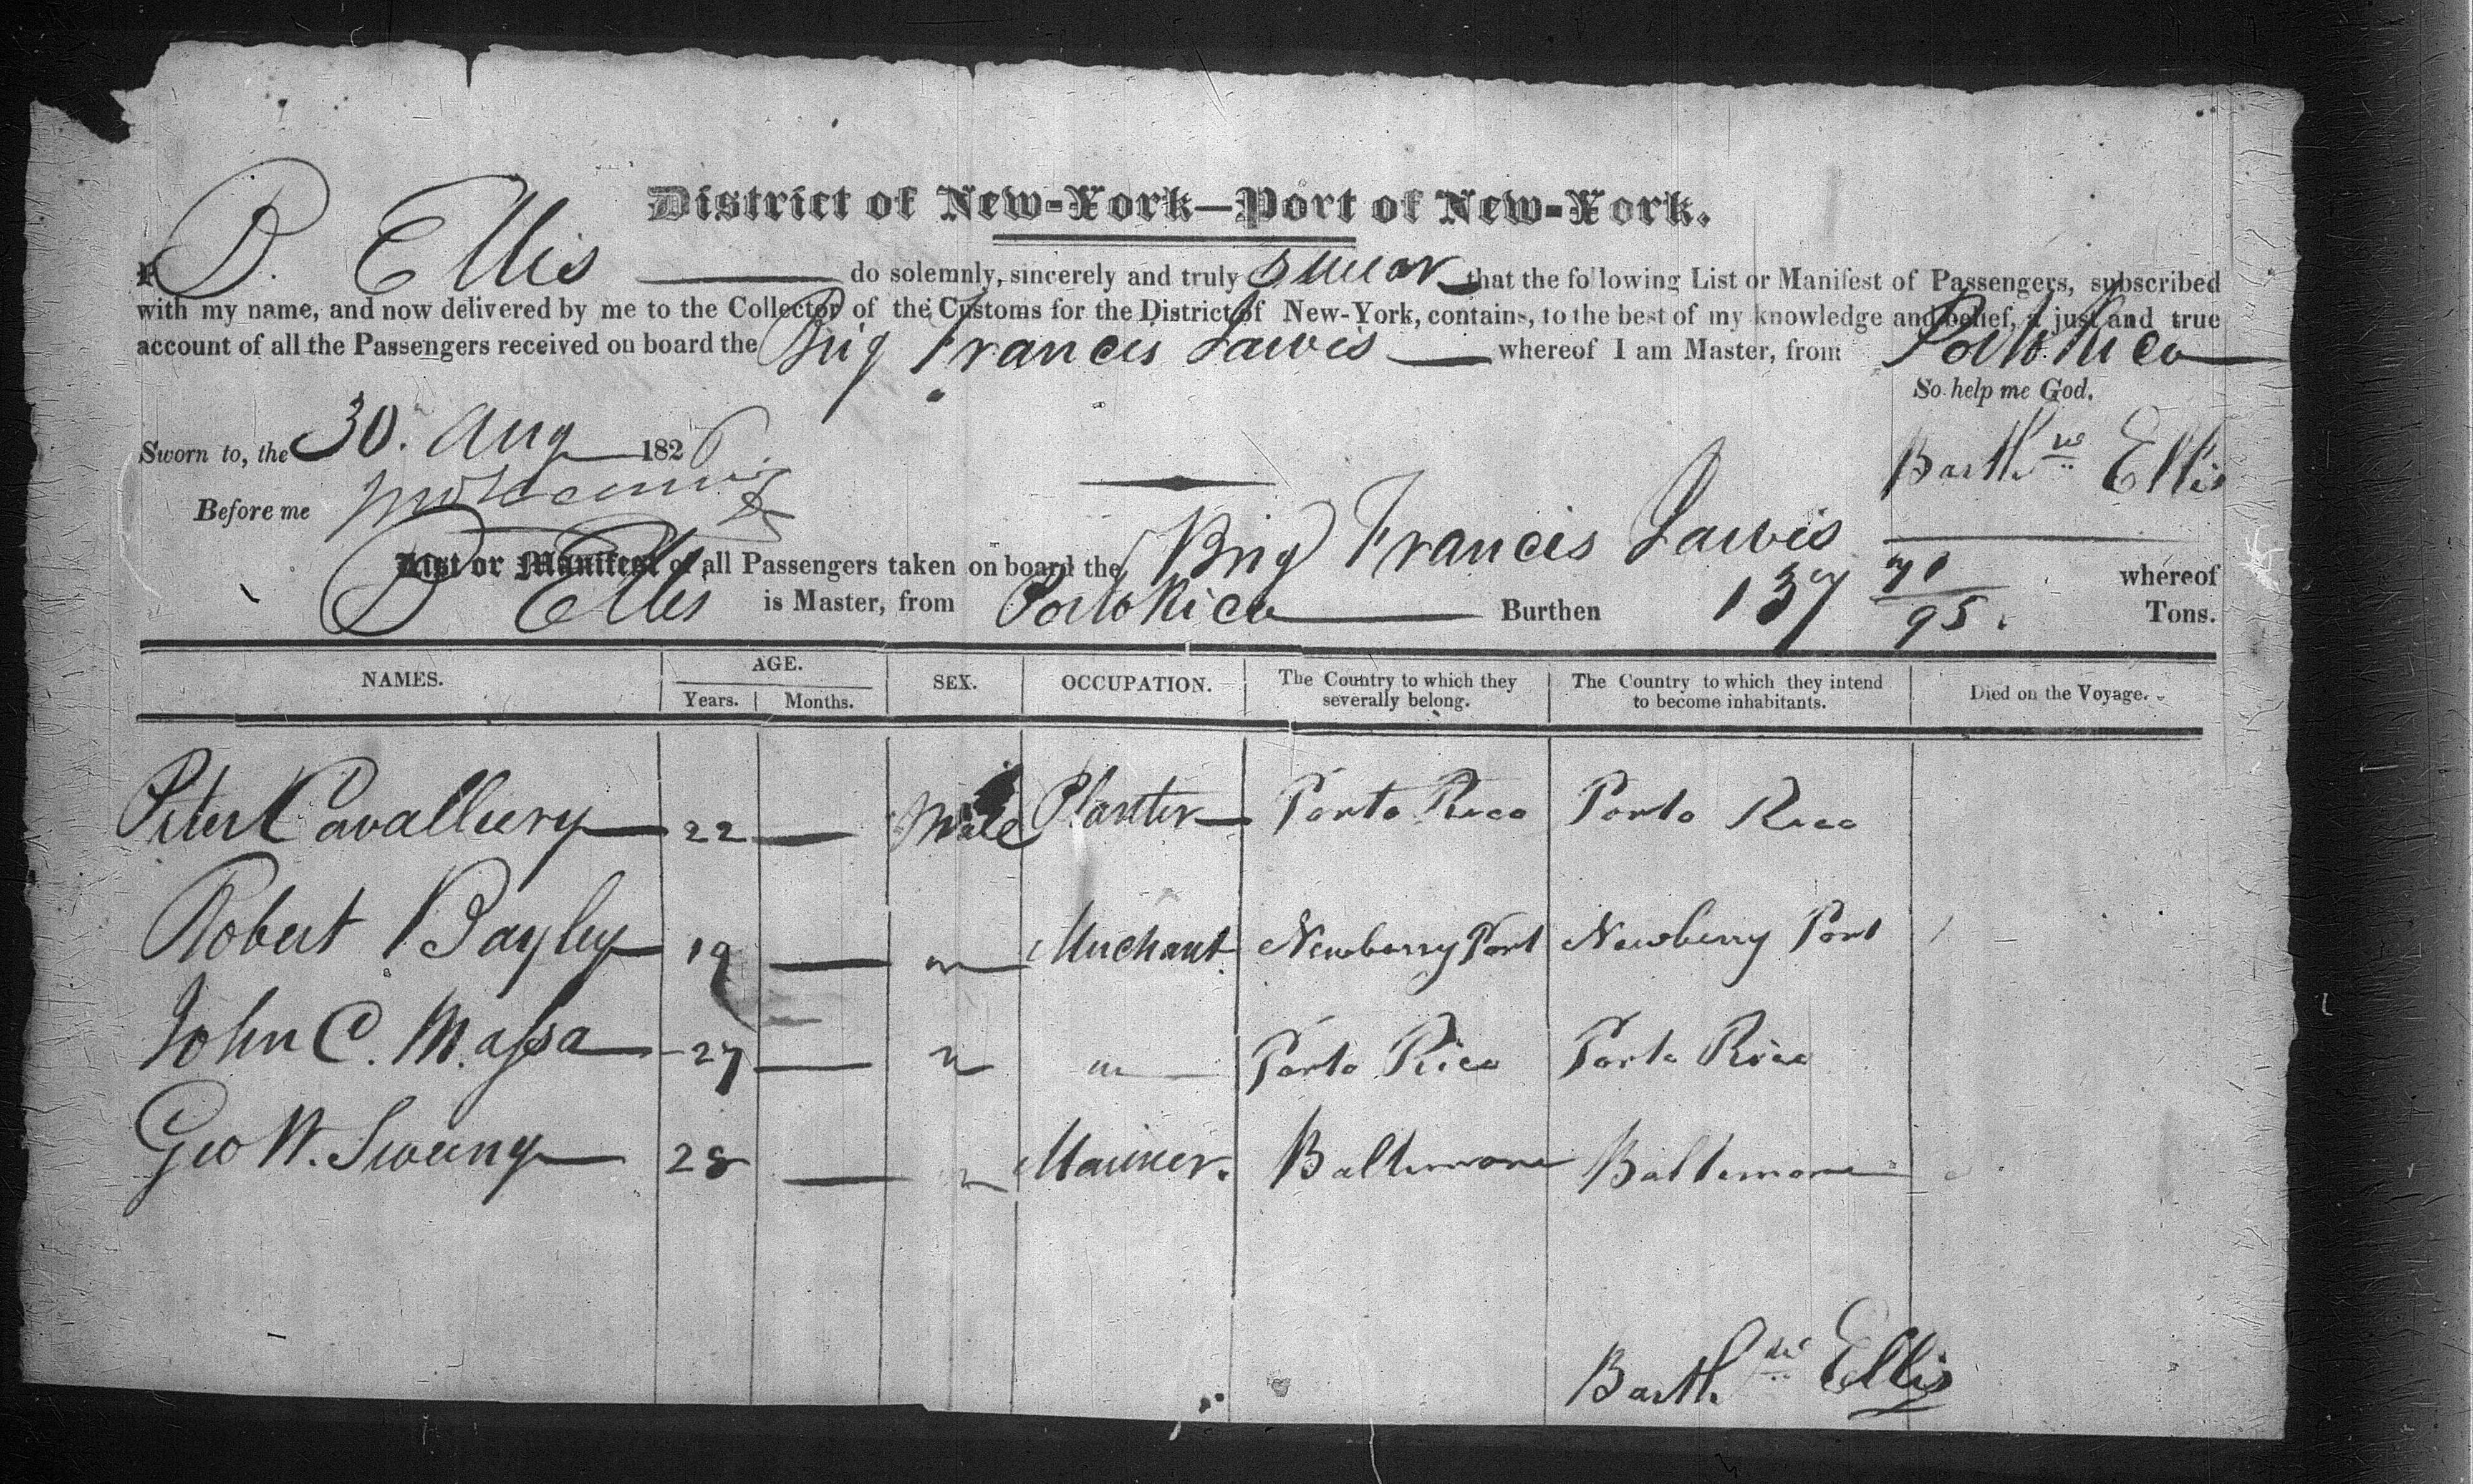 District of New-York—Port of New-York.
I, B. Ellis do solemnly, sincerely and truly swear that the following List or Manifest of Passengers, subscribed
with my name, and now delivered by me to the Collector of the Customs for the District of New-York, contains, to the best of my knowledge and belief, a just and true
account of all the Passengers received on board the Brig Francis Jarvis whereof I am Master, from Porto Rico
So help me God.
Sworn to, the 30. Aug 1826
Barthw Ellis
Before me
List or Manifest of all Passengers taken on board the Brig Francis Jarvis whereof
B Ellis is Master, from Porto Rico Burthen 137 71/95. Tons.
NAMES. AGE. SEX. OCCUPATION. The Country to which they severally belong. The Country to which they intend to become inhabitants. Died on the Voyage.
Years. Months.
Peter Cavalliery 22 — Male Planter Porto Rico Porto Rico
Robert Bayley 19 — " Merchant Newberry Port Newberry Port
John C. Massa 27 — " " Porto Rico Porto Rico
Geo W. Sweeny 28 — " Mariner. Baltimore Baltimore
Barthw Ellis